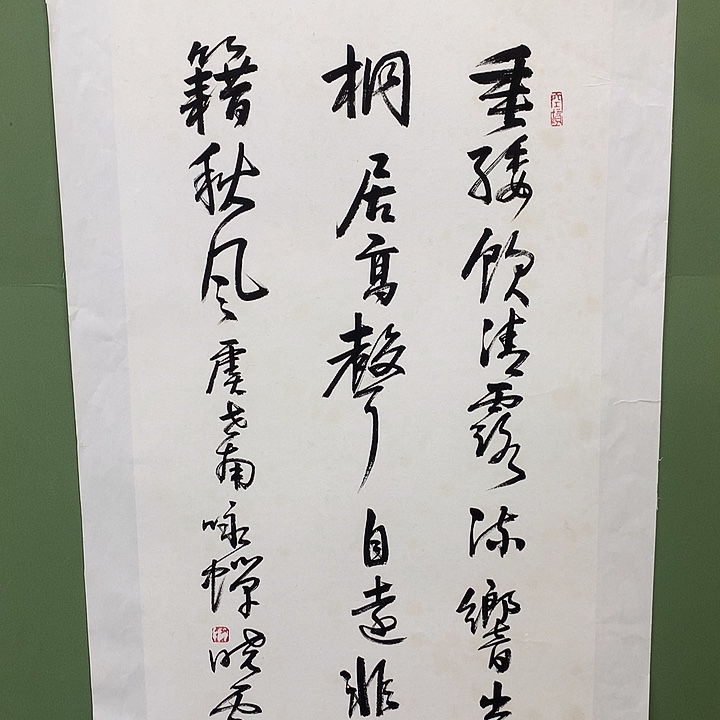 垂緌飲清露流響出
桐居高聲自遠非
籍秋風虞世南咏蟬曉雲